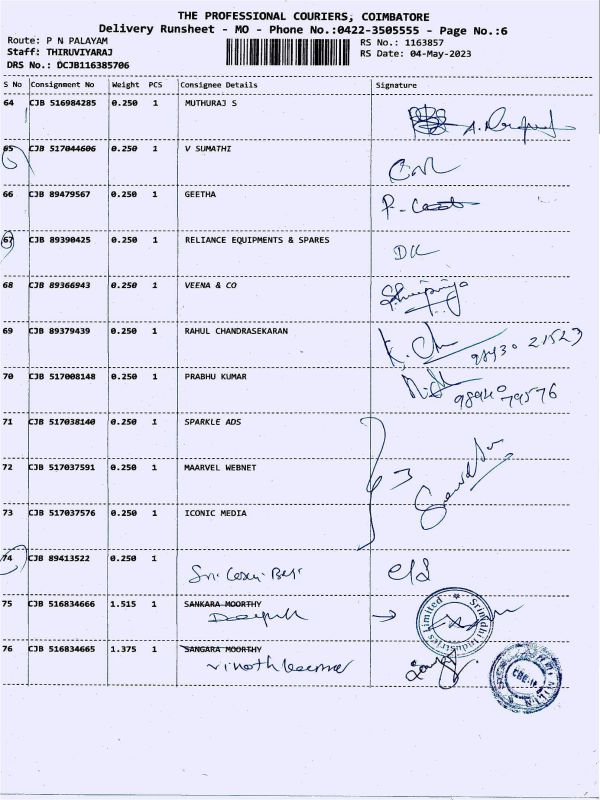 THE PROFESSIONAL COURIERS, COIMBATORE
Delivery Runsheet - MO - Phone No.:0422-3505555 - Page No.:6
Route: P N PALAYAM
Staff: THIRUVIYARAJ
DRS No.: DCJB116385706
RS No.: 1163857
RS Date: 04-May-2023
S No Consignment No Weight PCS Consignee Details Signature
64 CJB 516984285 0.250 1 MUTHURAJ S
65 CJB 517044606 0.250 1 V SUMATHI
66 CJB 89479567 0.250 1 GEETHA
67 CJB 89390425 0.250 1 RELIANCE EQUIPMENTS & SPARES DK
68 CJB 89366943 0.250 1 VEENA & CO
69 CJB 89379439 0.250 1 RAHUL CHANDRASEKARAN K. 98430 21523
70 CJB 517008148 0.250 1 PRABHU KUMAR 98940 79576
71 CJB 517038140 0.250 1 SPARKLE ADS
72 CJB 517037591 0.250 1 MAARVEL WEBNET 3
73 CJB 517037576 0.250 1 ICONIC MEDIA
74 CJB 89413522 0.250 1
75 CJB 516834666 1.515 1 SANKARA MOORTHY
Deepak
76 CJB 516834665 1.375 1 SANGARA MOORTHY
Vinothkumar